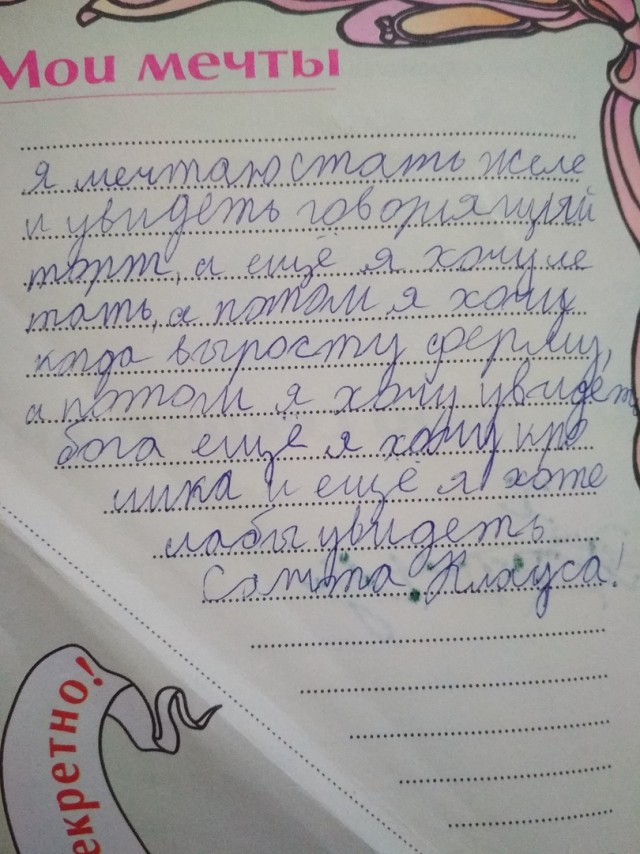 Мои мечты
я мечтаю стать желе
и увидеть говориящий
торт, а ещё я хочу ле
тать, а потом я хочу
когда выросту ферму,
а потом я хочу увидеть
бога ещё я хочу кро
лика и ещё я хоте
лабы увидеть
Санта Клауса!
екретно!